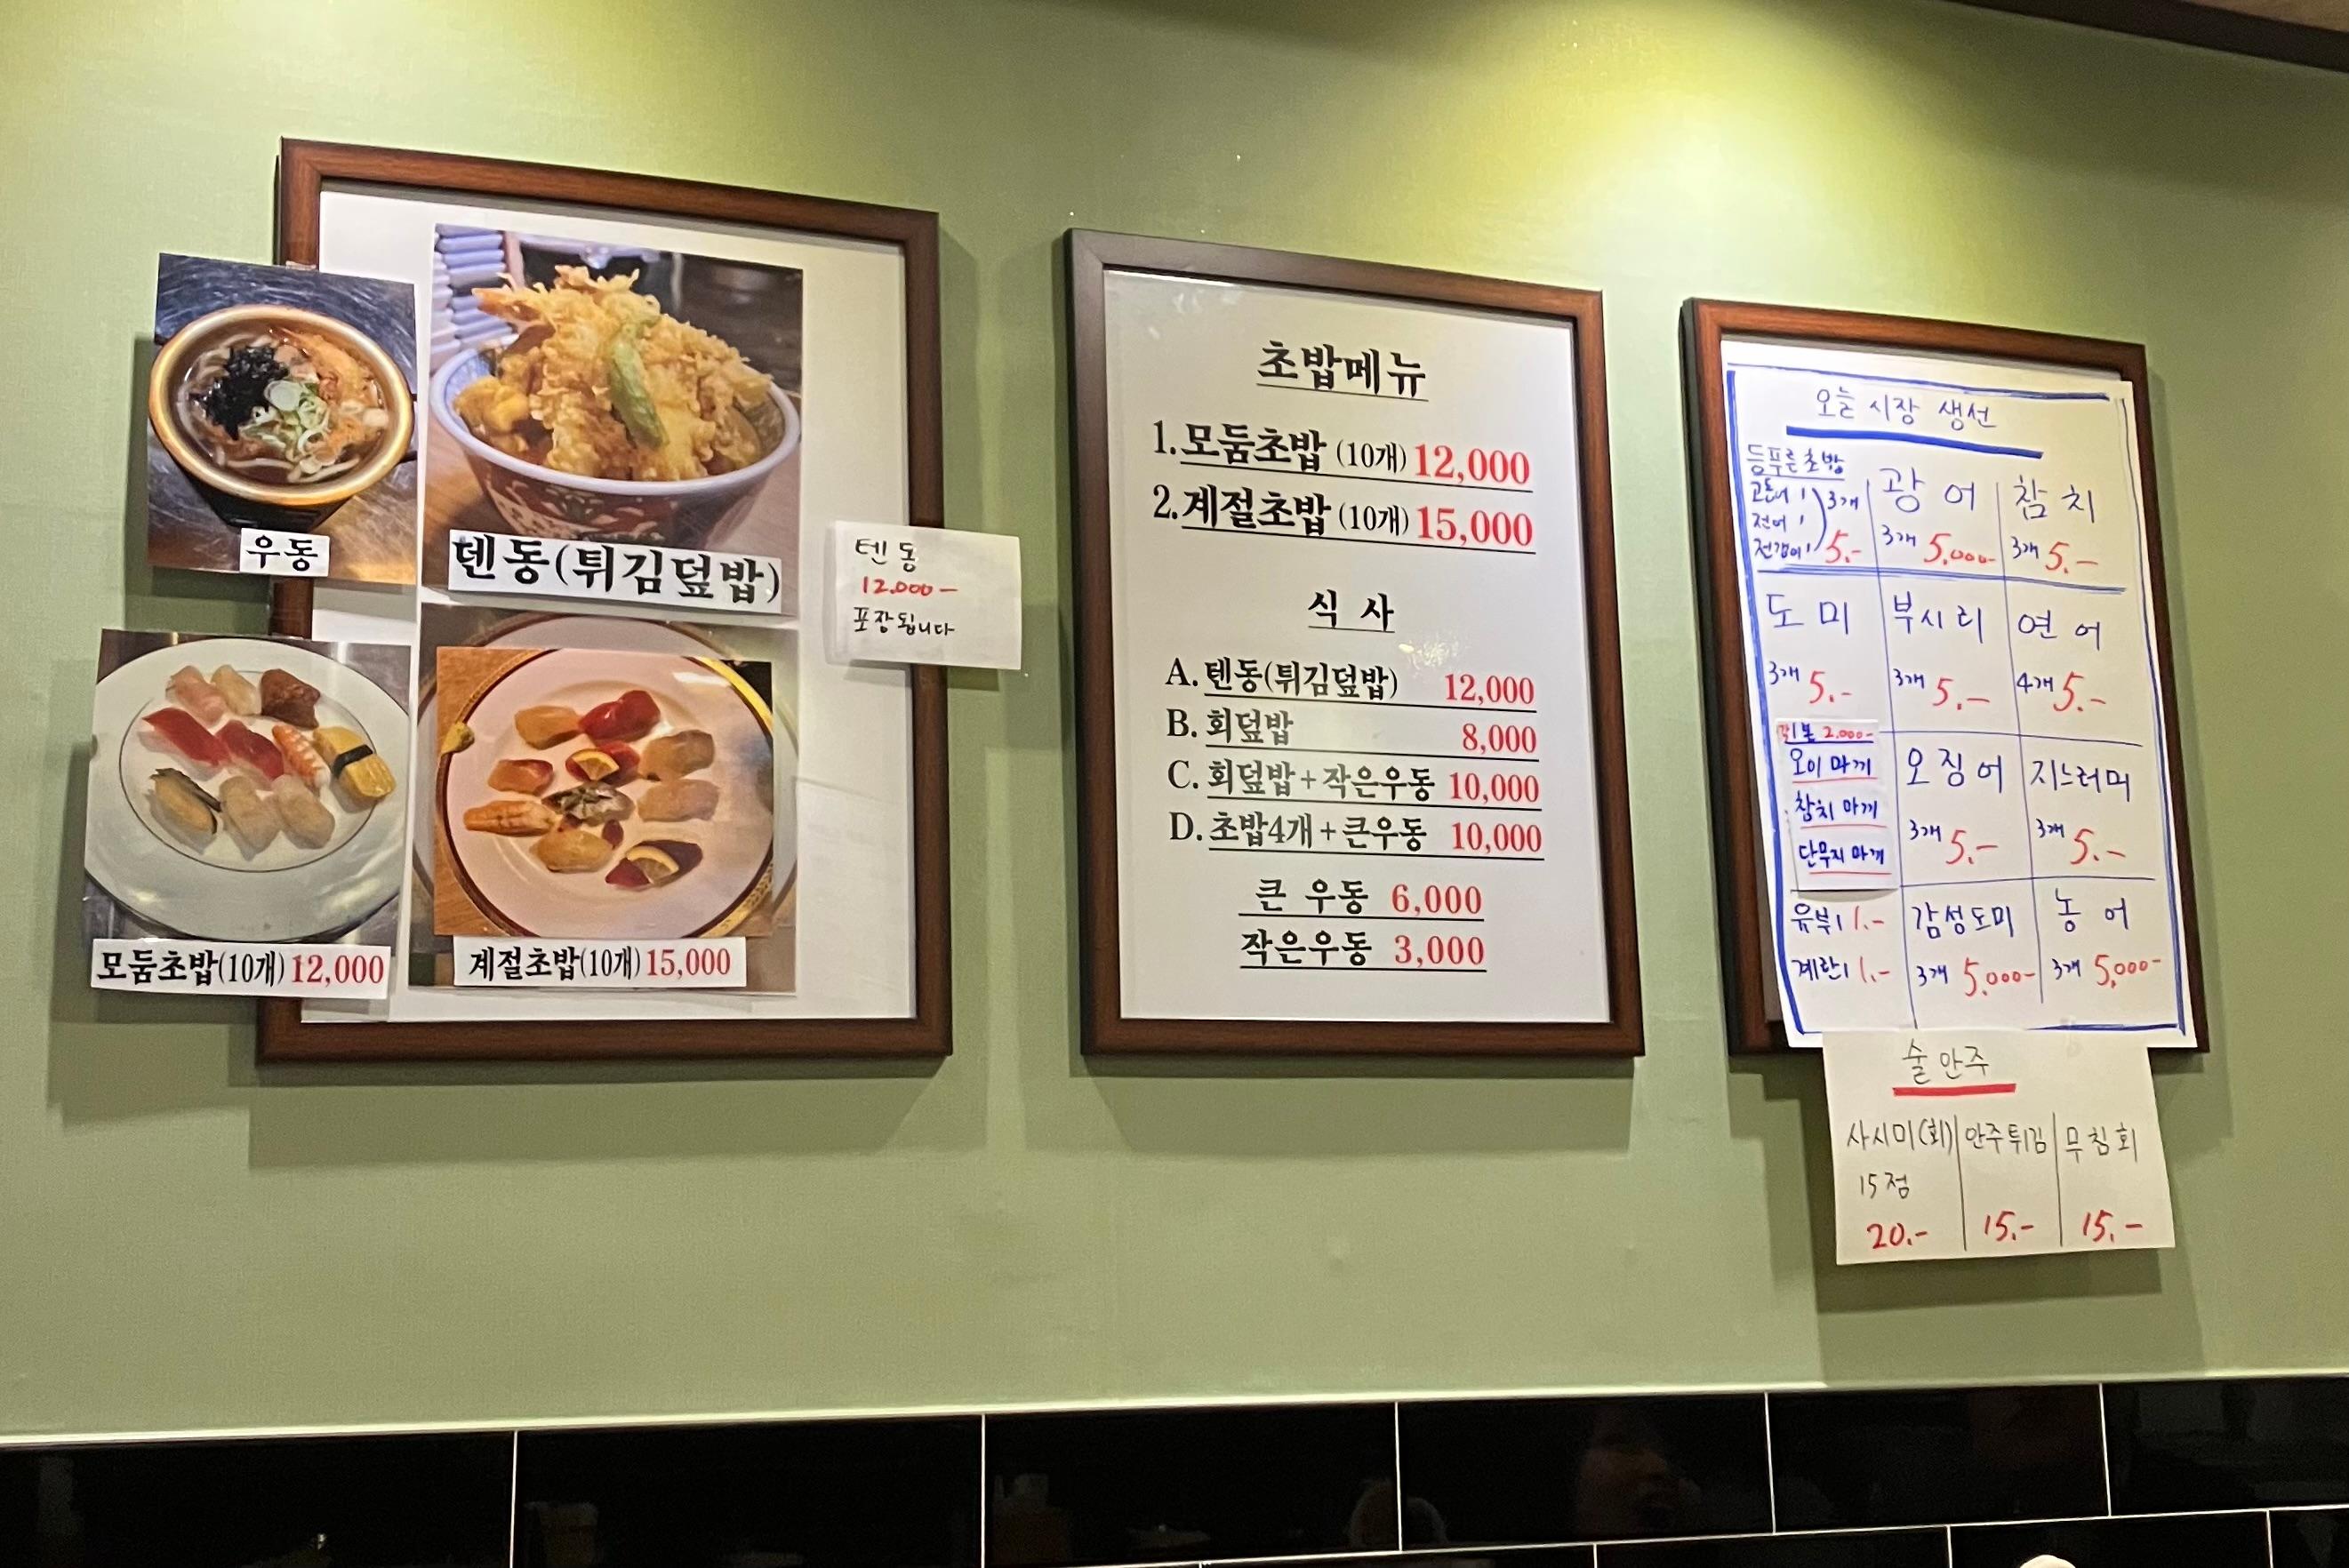 우동
텐동(튀김덮밥)
텐동
12.000-
포장됩니다
모둠초밥(10개) 12,000
계절초밥(10개) 15,000
초밥메뉴
1.모둠초밥 (10개) 12,000
2.계절초밥 (10개) 15,000
식 사
A.텐동(튀김덮밥) 12,000
B.회덮밥 8,000
C.회덮밥+작은우동 10,000
D.초밥4개+큰우동 10,000
큰 우동 6,000
작은우동 3,000
오늘 시장 생선
등푸른초밥
고등어 1
전어 1
전갱이 1
3개
5.-
광어
3개 5.000-
참치
3개 5.-
도미
3개 5.-
부시리
3개 5.-
연어
4개 5.-
2.000-
오이마끼
참치마끼
단무지마끼
오징어
3개 5.-
지느러미
3개 5.-
유부1 1.-
계란1 1.-
감성도미
3개 5.000-
농어
3개 5,000-
술안주
사시미(회)
15점
20.-
안주튀김
15.-
무침회
15.-